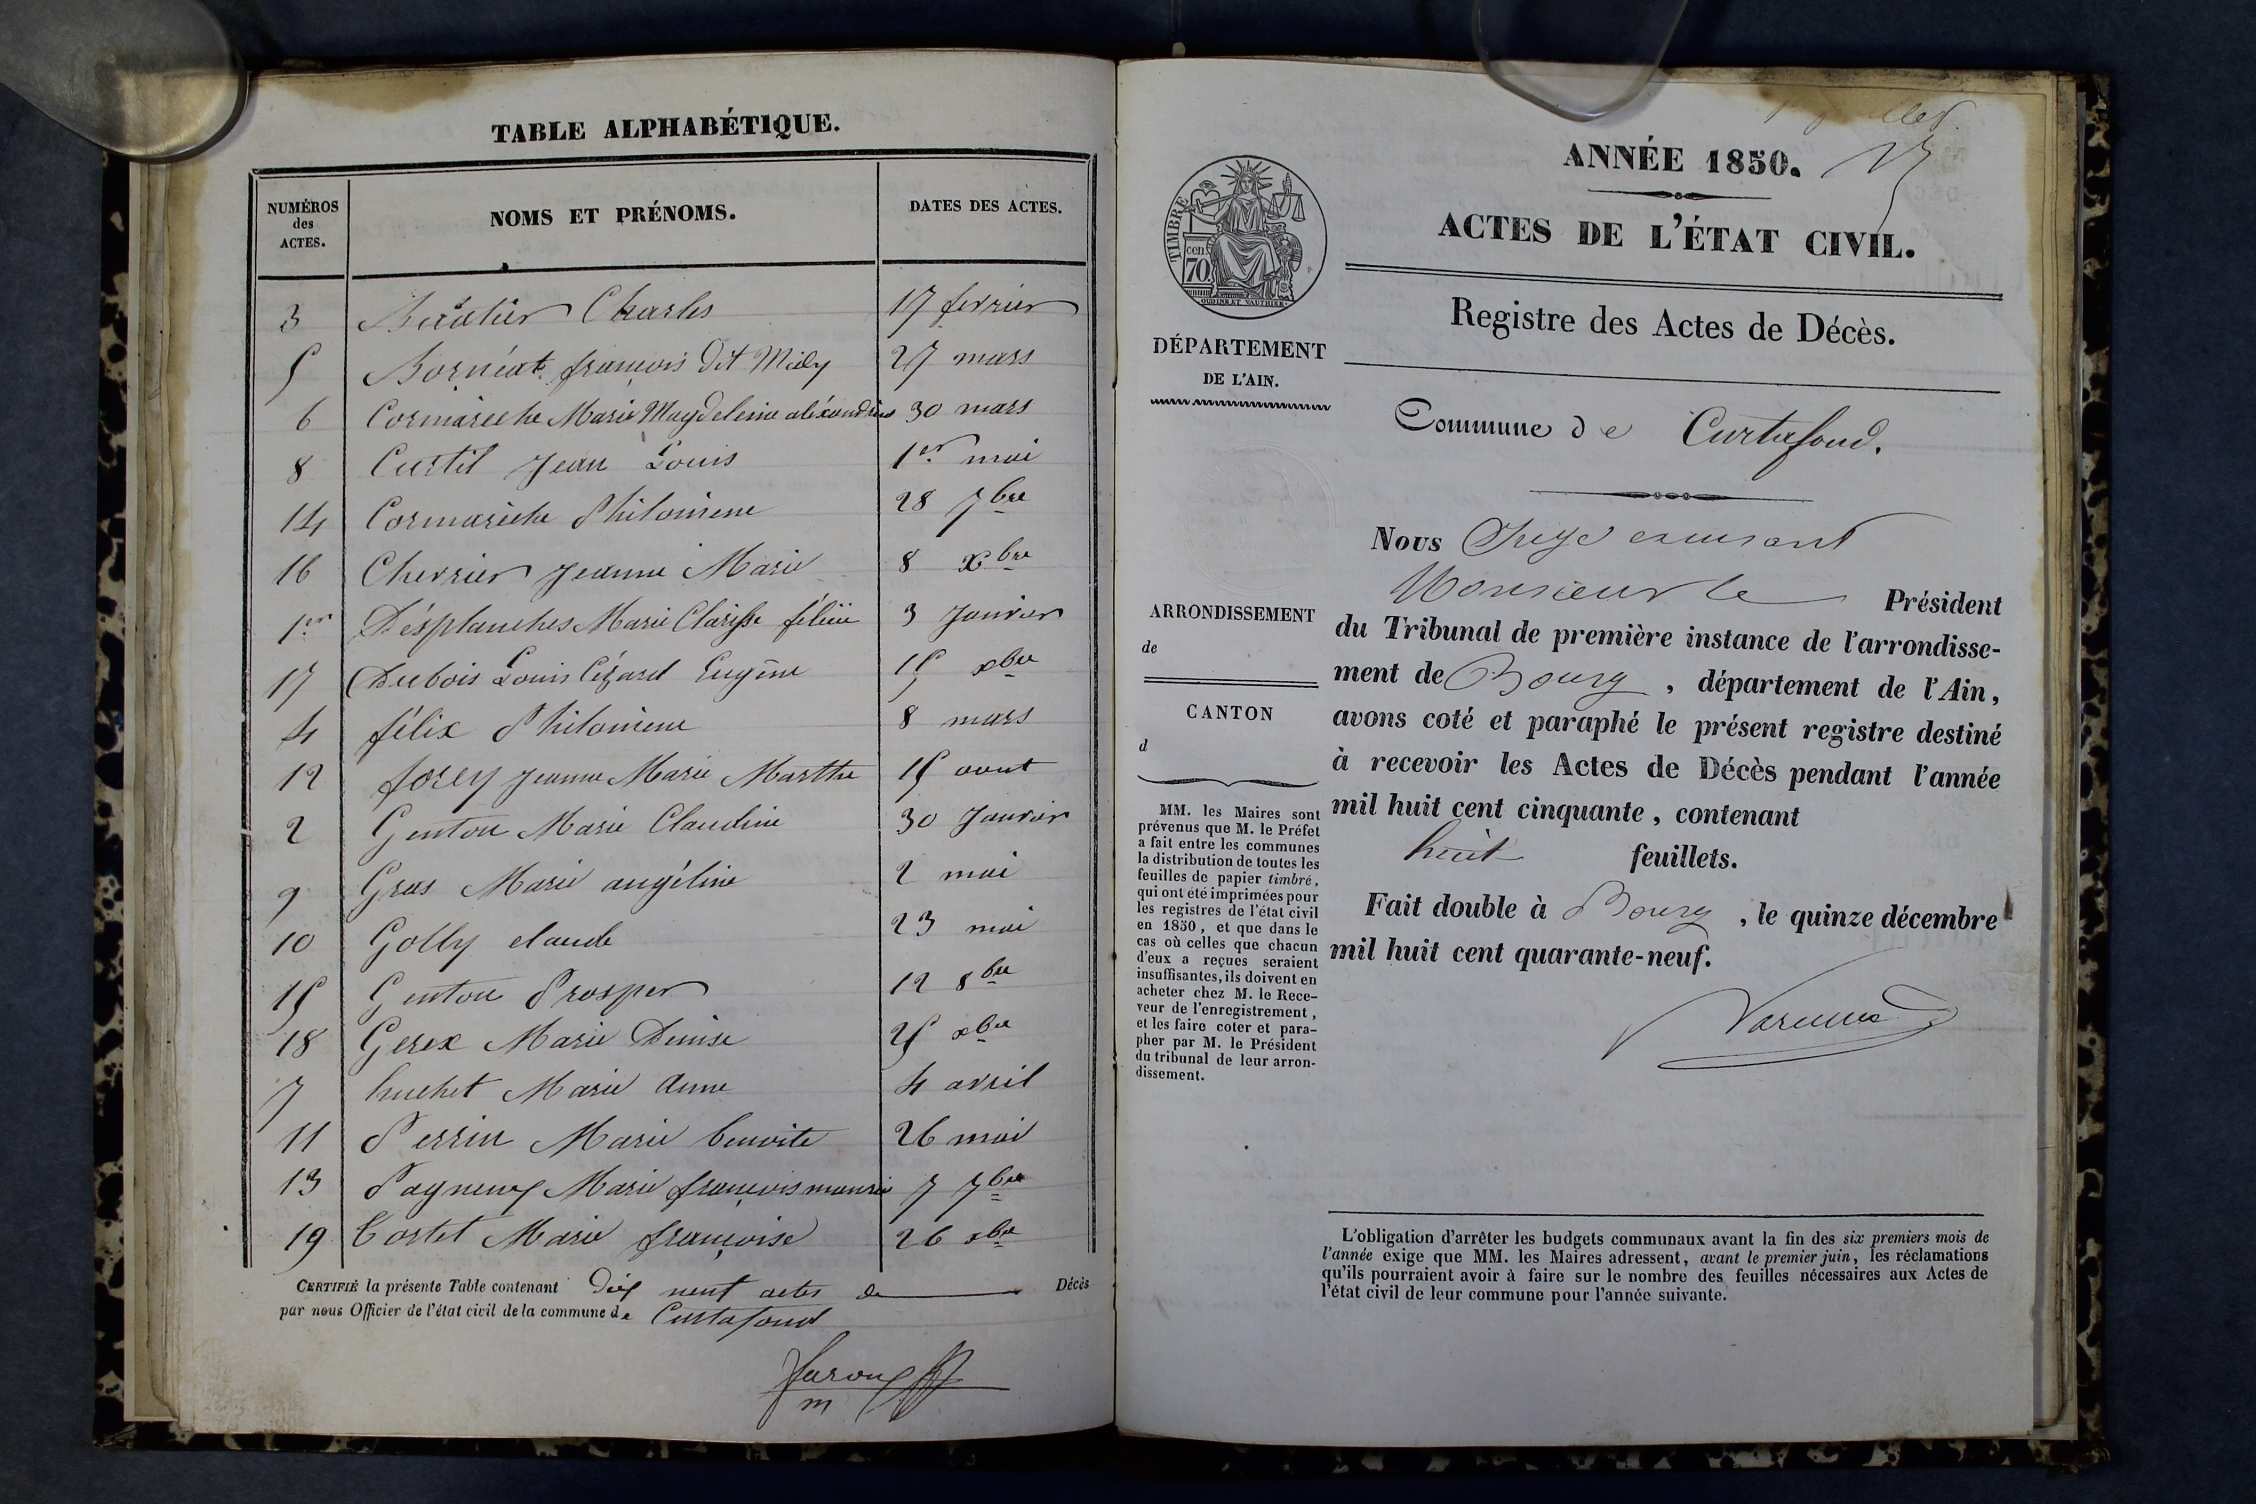 TABLE ALPHABÉTIQUE.
NUMÉROS des ACTES. NOMS ET PRÉNOMS. DATES DES ACTES.
3 Charles 17 fevrier
5 françois dit Mily 27 mars
6 Cormarèche Marie Magdeleine aléxandrine 30 mars
8 Curtil Jean Louis 1er mai
14 Cormarèche Philomène 28 7bre
16 Chevrier Jeanne Marie 8 xbre
1er Désplanches Marie Clarisse félicie 3 Janvier
17 Dubois Louis Cézard Eugène 15 xbre
4 félix Philomène 8 mars
12 forey Jeanne Marie Marthe 15 aout
2 Genton Marie Claudine 30 Janvier
9 Gras Marie angéline 2 mai
10 Golly claude 23 mai
15 Genton Prosper 12 8bre
18 Gerex Marie Denise 25 xbre
7 huchet Marie Anne 4 avril
11 Perrin Marie benoite 26 mai
13 Pagneux Marie françois 7 7bre
19 Marie françoise 26 xbre
CERTIFIÉ la présente Table contenant Dix neuf actes de Décès
par nous Officier de l'état civil de la commune de Curtafond
m
ANNÉE 1850.
ACTES DE L'ÉTAT CIVIL.
TIMBRE
cen.
70
OUDINÉ ET VAUTHIER
Registre des Actes de Décès.
DÉPARTEMENT
DE L'AIN.
Commune de Curtafond.
Nous Juge
Monsieur le Président
ARRONDISSEMENT
de
CANTON
d
du Tribunal de première instance de l'arrondisse-
ment de Bourg, département de l'Ain,
avons coté et paraphé le présent registre destiné
à recevoir les Actes de Décès pendant l'année
mil huit cent cinquante, contenant
huit feuillets.
Fait double à Bourg, le quinze décembre
mil huit cent quarante-neuf.
MM. les Maires sont
prévenus que M. le Préfet
a fait entre les communes
la distribution de toutes les
feuilles de papier timbré,
qui ont été imprimées pour
les registres de l'état civil
en 1850, et que dans le
cas où celles que chacun
d'eux a reçues seraient
insuffisantes, ils doivent en
acheter chez M. le Rece-
veur de l'enregistrement,
et les faire coter et para-
pher par M. le Président
du tribunal de leur arron-
dissement.
L'obligation d'arrêter les budgets communaux avant la fin des six premiers mois de
l'année exige que MM. les Maires adressent, avant le premier juin, les réclamations
qu'ils pourraient avoir à faire sur le nombre des feuilles nécessaires aux Actes de
l'état civil de leur commune pour l'année suivante.